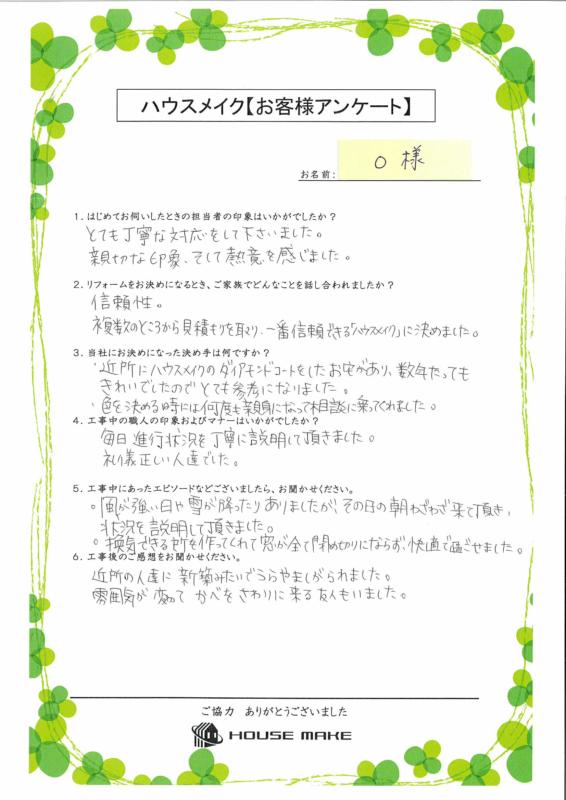 ハウスメイク【お客様アンケート】
お名前：
O 様
１．はじめてお伺いしたときの担当者の印象はいかがでしたか？
とても丁寧な対応をして下さいました。
親切な印象、そして熱意を感じました。
２．リフォームをお決めになるとき、ご家族でどんなことを話し合われましたか？
信頼性。
複数のところから見積もりを取り、一番信頼できる「ハウスメイク」に決めました。
３．当社にお決めになった決め手は何ですか？
・近所にハウスメイクのダイアモンドコートをしたお宅があり、数年たっても
きれいでしたのでとても参考になりました。
・色を決める時には何度も親身になって相談に乗ってくれました。
４．工事中の職人の印象およびマナーはいかがでしたか？
毎日進行状況を丁寧に説明して頂きました。
礼儀正しい人達でした。
５．工事中にあったエピソードなどございましたら、お聞かせください。
。風が強い日や雪が降ったりありましたが、その日の朝わざわざ来て頂き、
状況を説明して頂きました。
。換気できる所を作ってくれて窓が全て閉め切りにならず、快適で過ごせました。
６．工事後のご感想をお聞かせください。
近所の人達に新築みたいでうらやましがられました。
雰囲気が変わって かべをさわりに来る友人もいました。
ご協力 ありがとうございました
HOUSE MAKE